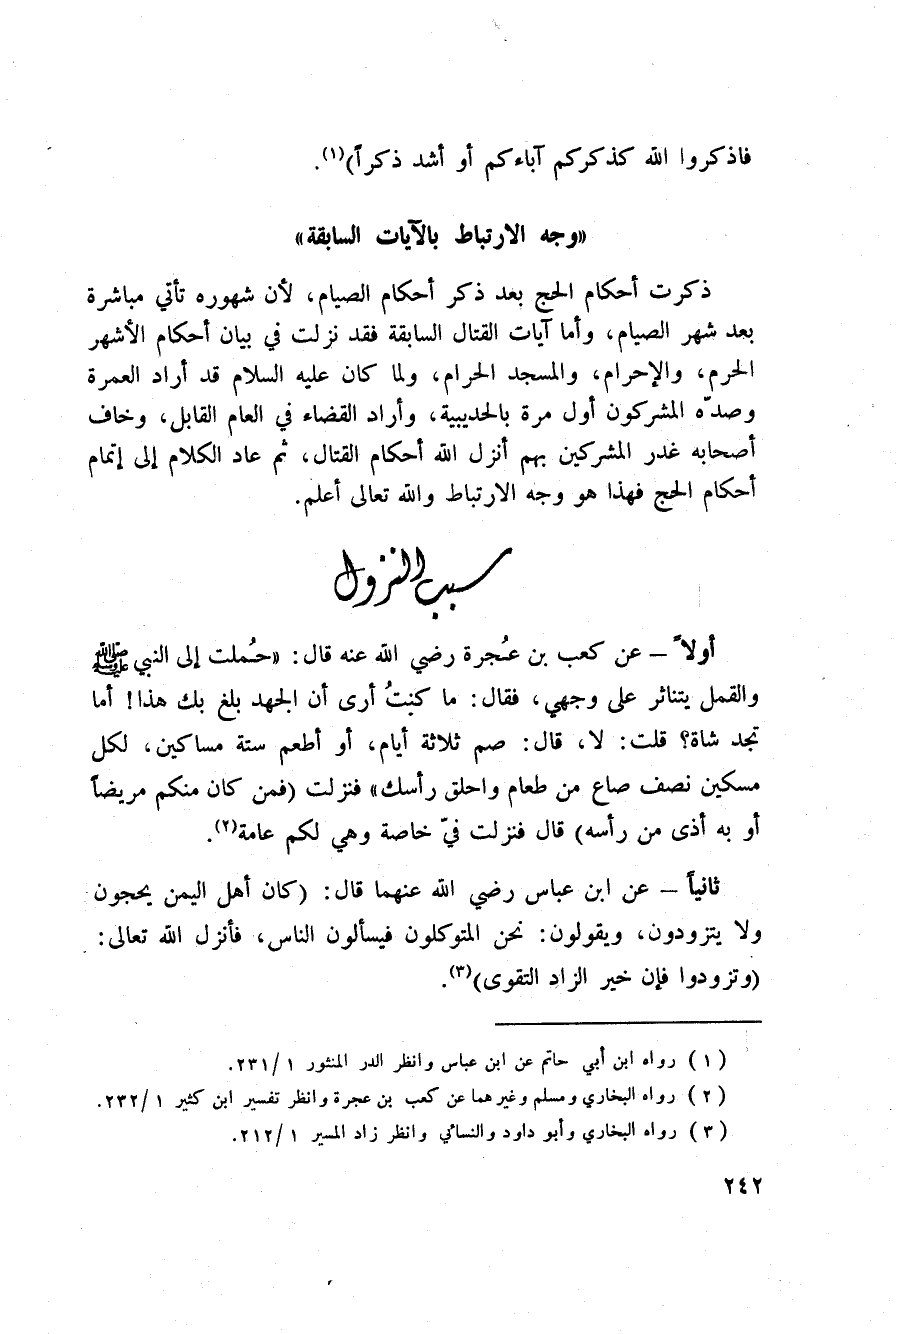 فاذكروا الله كذكركم آباءكم أو أشد ذكراً)(١).
«وجه الارتباط بالآيات السابقة»
ذكرت أحكام الحج بعد ذكر أحكام الصيام، لأن شهوره تأتي مباشرة
بعد شهر الصيام، وأما آيات القتال السابقة فقد نزلت في بيان أحكام الأشهر
الحرم، والإحرام، والمسجد الحرام، ولما كان عليه السلام قد أراد العمرة
وصدّه المشركون أول مرة بالحديبية، وأراد القضاء في العام القابل، وخاف
أصحابه غدر المشركين بهم أنزل الله أحكام القتال، ثم عاد الكلام إلى إتمام
أحكام الحج فهذا هو وجه الارتباط والله تعالى أعلم.
سبب النزول
أولاً – عن كعب بن عُجرة رضي الله عنه قال: «حُملت إلى النبي ﷺ
والقمل يتناثر على وجهي، فقال: ما كنتُ أرى أن الجهد بلغ بك هذا! أما
تجد شاة؟ قلت: لا، قال: صم ثلاثة أيام، أو أطعم ستة مساكين، لكل
مسكين نصف صاع من طعام واحلق رأسك» فنزلت (فمن كان منكم مريضاً
أو به أذى من رأسه) قال فنزلت فيّ خاصة وهي لكم عامة(٢).
ثانياً – عن ابن عباس رضي الله عنهما قال: (كان أهل اليمن يحجون
ولا يتزودون، ويقولون: نحن المتوكلون فيسألون الناس، فأنزل الله تعالى:
(وتزودوا فإن خير الزاد التقوى)(٣).
(١) رواه ابن أبي حاتم عن ابن عباس وانظر الدر المنثور ١/٢٣١.
(٢) رواه البخاري ومسلم وغيرهما عن كعب بن عجرة وانظر تفسير ابن كثير ١/٢٣٢.
(٣) رواه البخاري وأبو داود والنسائي وانظر زاد المسير ١/٢١٢.
٢٤٢